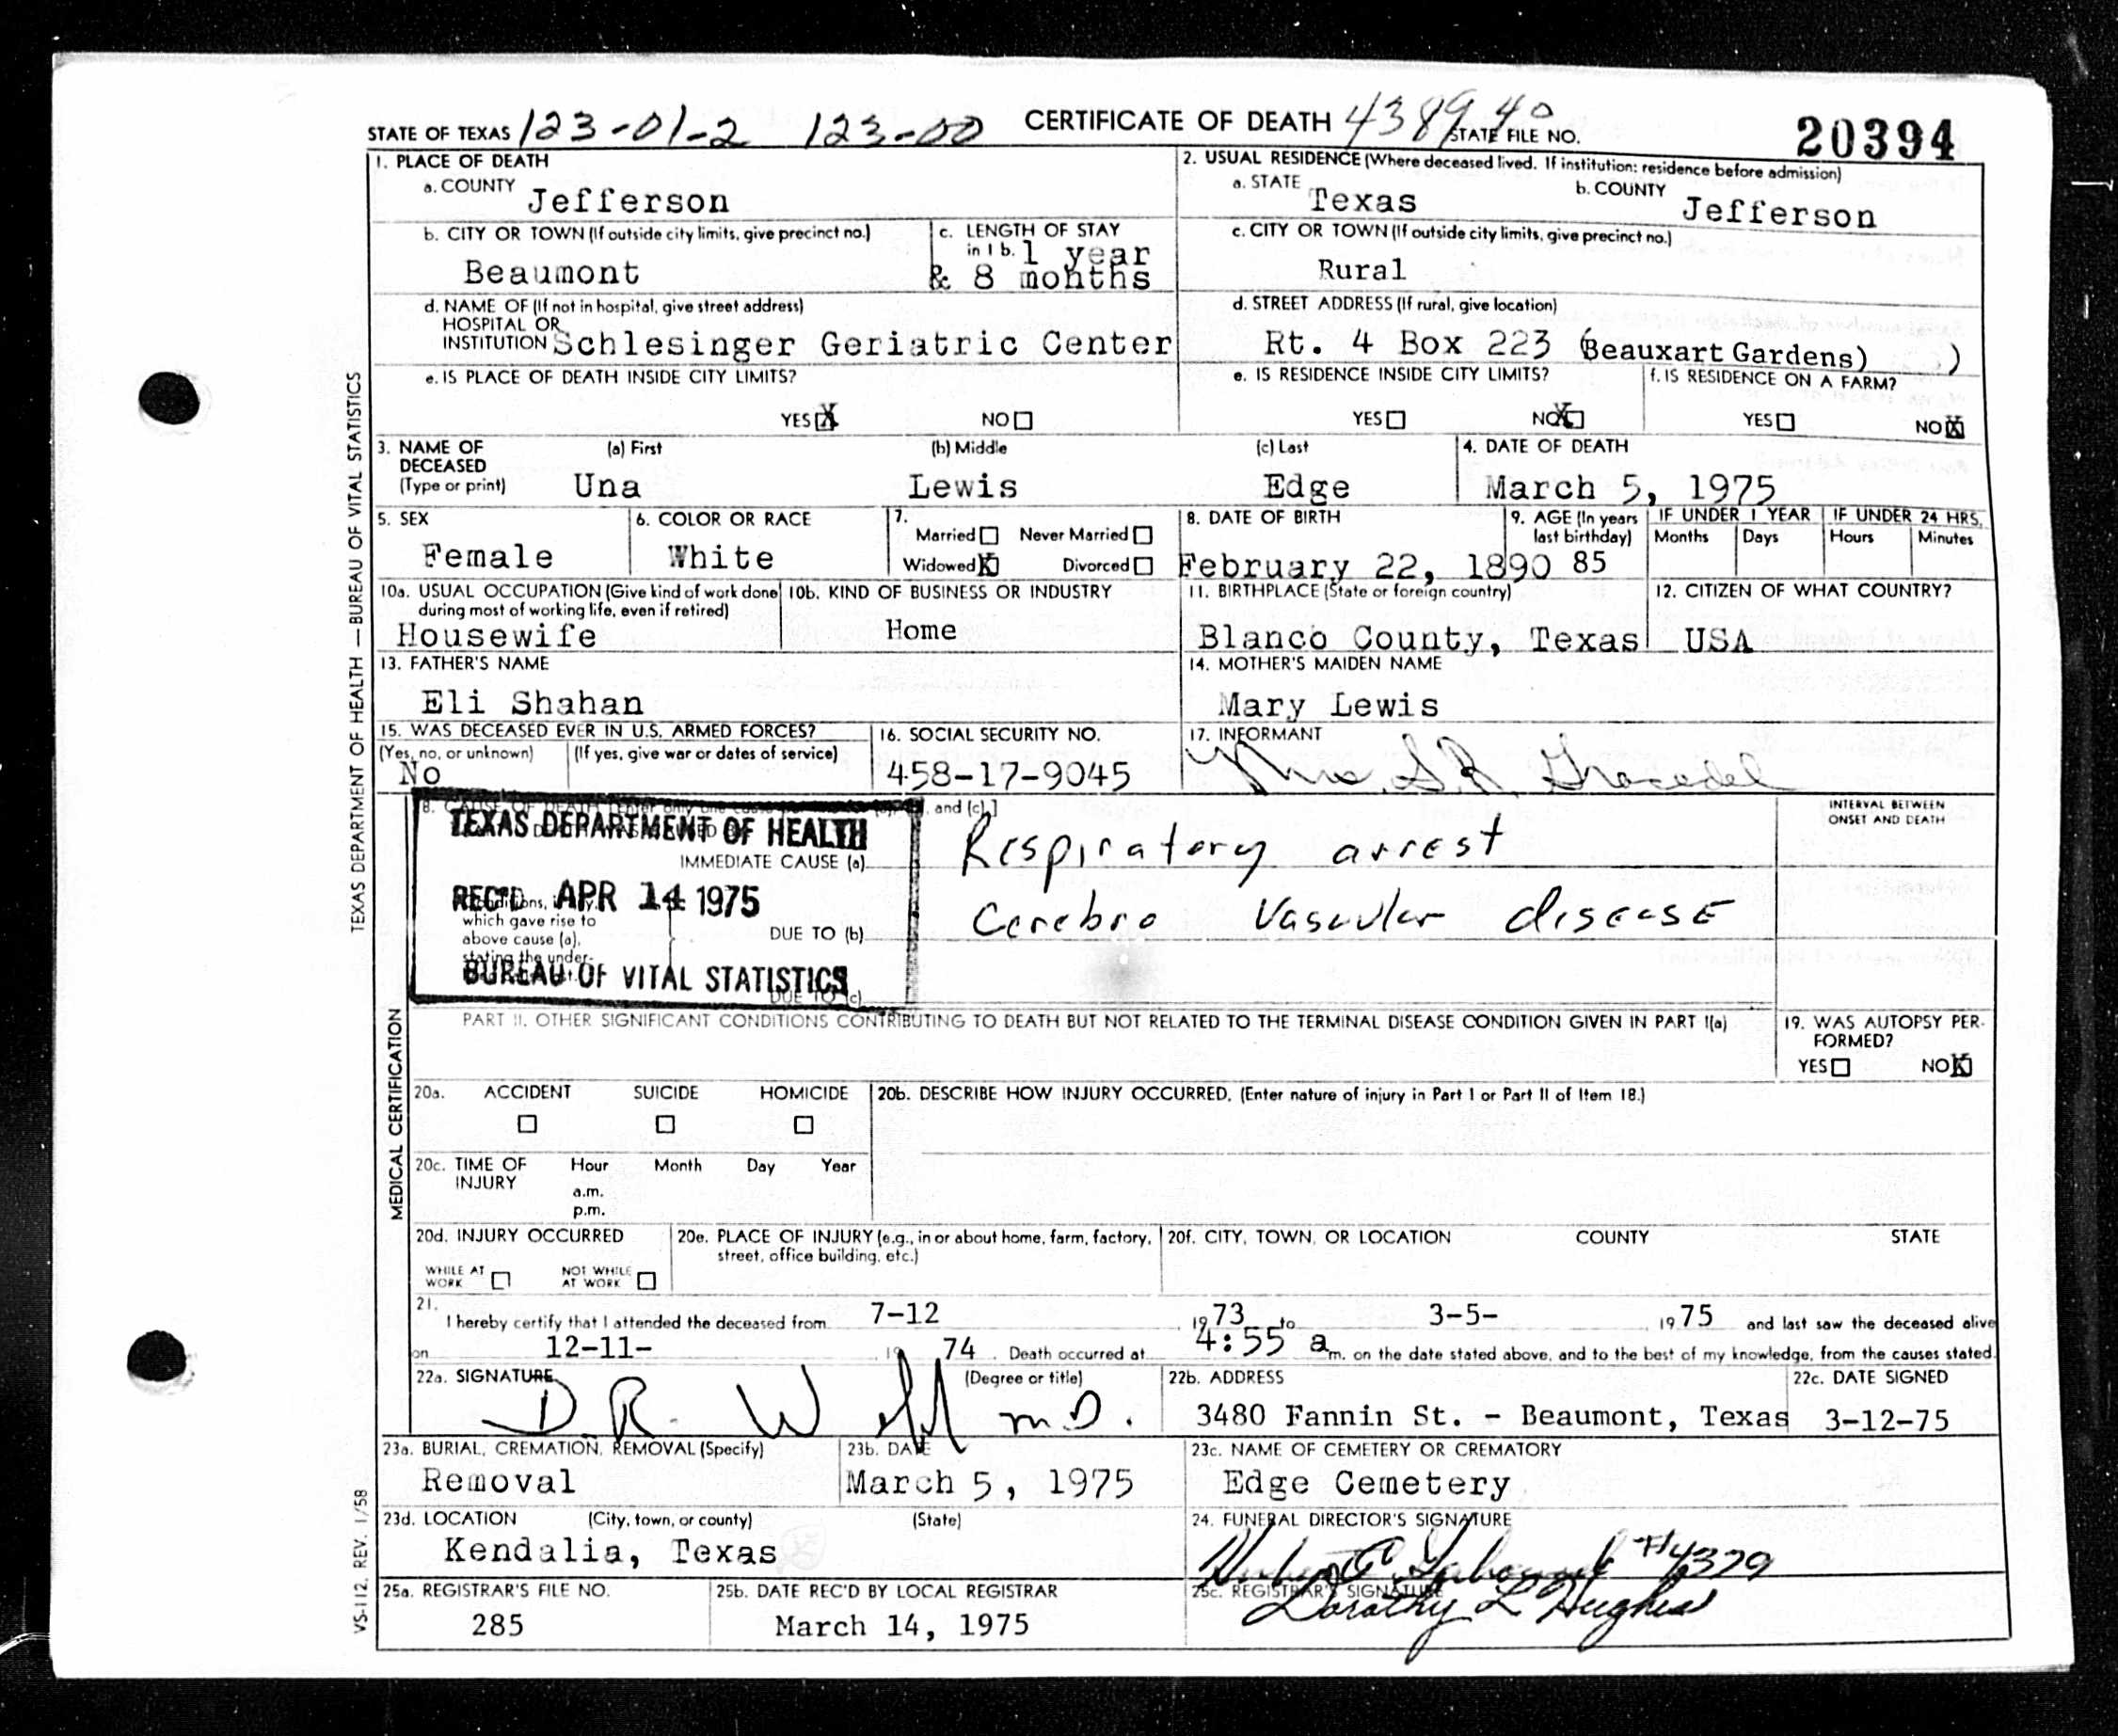 STATE OF TEXAS 123-01-2 123-00 CERTIFICATE OF DEATH 438940 STATE FILE NO. 20394
1. PLACE OF DEATH
a. COUNTY Jefferson
2. USUAL RESIDENCE (Where deceased lived. If institution: residence before admission)
a. STATE Texas b. COUNTY Jefferson
b. CITY OR TOWN (If outside city limits, give precinct no.)
Beaumont
c. LENGTH OF STAY
in 1 b. 1 year
& 8 months
c. CITY OR TOWN (If outside city limits, give precinct no.)
Rural
d. NAME OF (If not in hospital, give street address)
HOSPITAL OR
INSTITUTION Schlesinger Geriatric Center
d. STREET ADDRESS (If rural, give location)
Rt. 4 Box 223 (Beauxart Gardens) )
e. IS PLACE OF DEATH INSIDE CITY LIMITS?
YES X NO
e. IS RESIDENCE INSIDE CITY LIMITS?
YES NO X
f. IS RESIDENCE ON A FARM?
YES NO X
3. NAME OF DECEASED (Type or print)
(a) First (b) Middle (c) Last
Una Lewis Edge
4. DATE OF DEATH
March 5, 1975
5. SEX
Female
6. COLOR OR RACE
White
7.
Married Never Married
Widowed X Divorced
8. DATE OF BIRTH
February 22, 1890
9. AGE (In years last birthday)
85
IF UNDER 1 YEAR IF UNDER 24 HRS.
Months Days Hours Minutes
10a. USUAL OCCUPATION (Give kind of work done
during most of working life, even if retired)
Housewife
10b. KIND OF BUSINESS OR INDUSTRY
Home
11. BIRTHPLACE (State or foreign country)
Blanco County, Texas
12. CITIZEN OF WHAT COUNTRY?
USA
13. FATHER'S NAME
Eli Shahan
14. MOTHER'S MAIDEN NAME
Mary Lewis
15. WAS DECEASED EVER IN U.S. ARMED FORCES?
(Yes, no, or unknown) (If yes, give war or dates of service)
No
16. SOCIAL SECURITY NO.
458-17-9045
17. INFORMANT
Mrs. S.R.
and (c).]
TEXAS DEPARTMENT OF HEALTH
REC'D APR 14 1975
BUREAU OF VITAL STATISTICS
IMMEDIATE CAUSE (a) Respiratory arrest
which gave rise to
above cause (a),
stating the under-
DUE TO (b) Cerebro Vascular disease
DUE TO (c)
INTERVAL BETWEEN
ONSET AND DEATH
PART II. OTHER SIGNIFICANT CONDITIONS CONTRIBUTING TO DEATH BUT NOT RELATED TO THE TERMINAL DISEASE CONDITION GIVEN IN PART I(a)
19. WAS AUTOPSY PER-
FORMED?
YES NO X
20a. ACCIDENT SUICIDE HOMICIDE
20b. DESCRIBE HOW INJURY OCCURRED. (Enter nature of injury in Part I or Part II of Item 18.)
20c. TIME OF INJURY Hour Month Day Year
a.m.
p.m.
20d. INJURY OCCURRED
WHILE AT WORK NOT WHILE AT WORK
20e. PLACE OF INJURY (e.g., in or about home, farm, factory,
street, office building, etc.)
20f. CITY, TOWN, OR LOCATION COUNTY STATE
21.
I hereby certify that I attended the deceased from 7-12 1973 to 3-5- 1975 and last saw the deceased alive
on 12-11- 1974. Death occurred at 4:55 a m. on the date stated above, and to the best of my knowledge, from the causes stated.
22a. SIGNATURE (Degree or title)
D. R. M.D.
22b. ADDRESS
3480 Fannin St. - Beaumont, Texas
22c. DATE SIGNED
3-12-75
23a. BURIAL, CREMATION, REMOVAL (Specify)
Removal
23b. DATE
March 5, 1975
23c. NAME OF CEMETERY OR CREMATORY
Edge Cemetery
23d. LOCATION (City, town, or county) (State)
Kendalia, Texas
24. FUNERAL DIRECTOR'S SIGNATURE
#4379
25a. REGISTRAR'S FILE NO.
285
25b. DATE REC'D BY LOCAL REGISTRAR
March 14, 1975
25c. REGISTRAR'S SIGNATURE
Dorothy L Hughes
TEXAS DEPARTMENT OF HEALTH — BUREAU OF VITAL STATISTICS
MEDICAL CERTIFICATION
VS-112, REV. 1/58